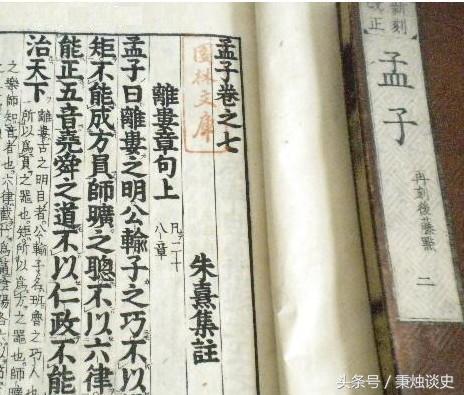 新刻
改正
孟子
再刻後藤點
二
孟子卷之七
園林文庫
朱熹集註
離婁章句上
凡二十
八章
孟子曰離婁之明公輸子之巧不以
矩不能成方員師曠之聰不以六律
能正五音堯舜之道不以仁政不能
治天下
離婁古之明目者公輸子名班魯之巧人也
所以爲員之器也矩所以爲方之器也師曠
之樂師知音者也六律截竹爲筩陰陽各六
头条号 / 秉烛谈史